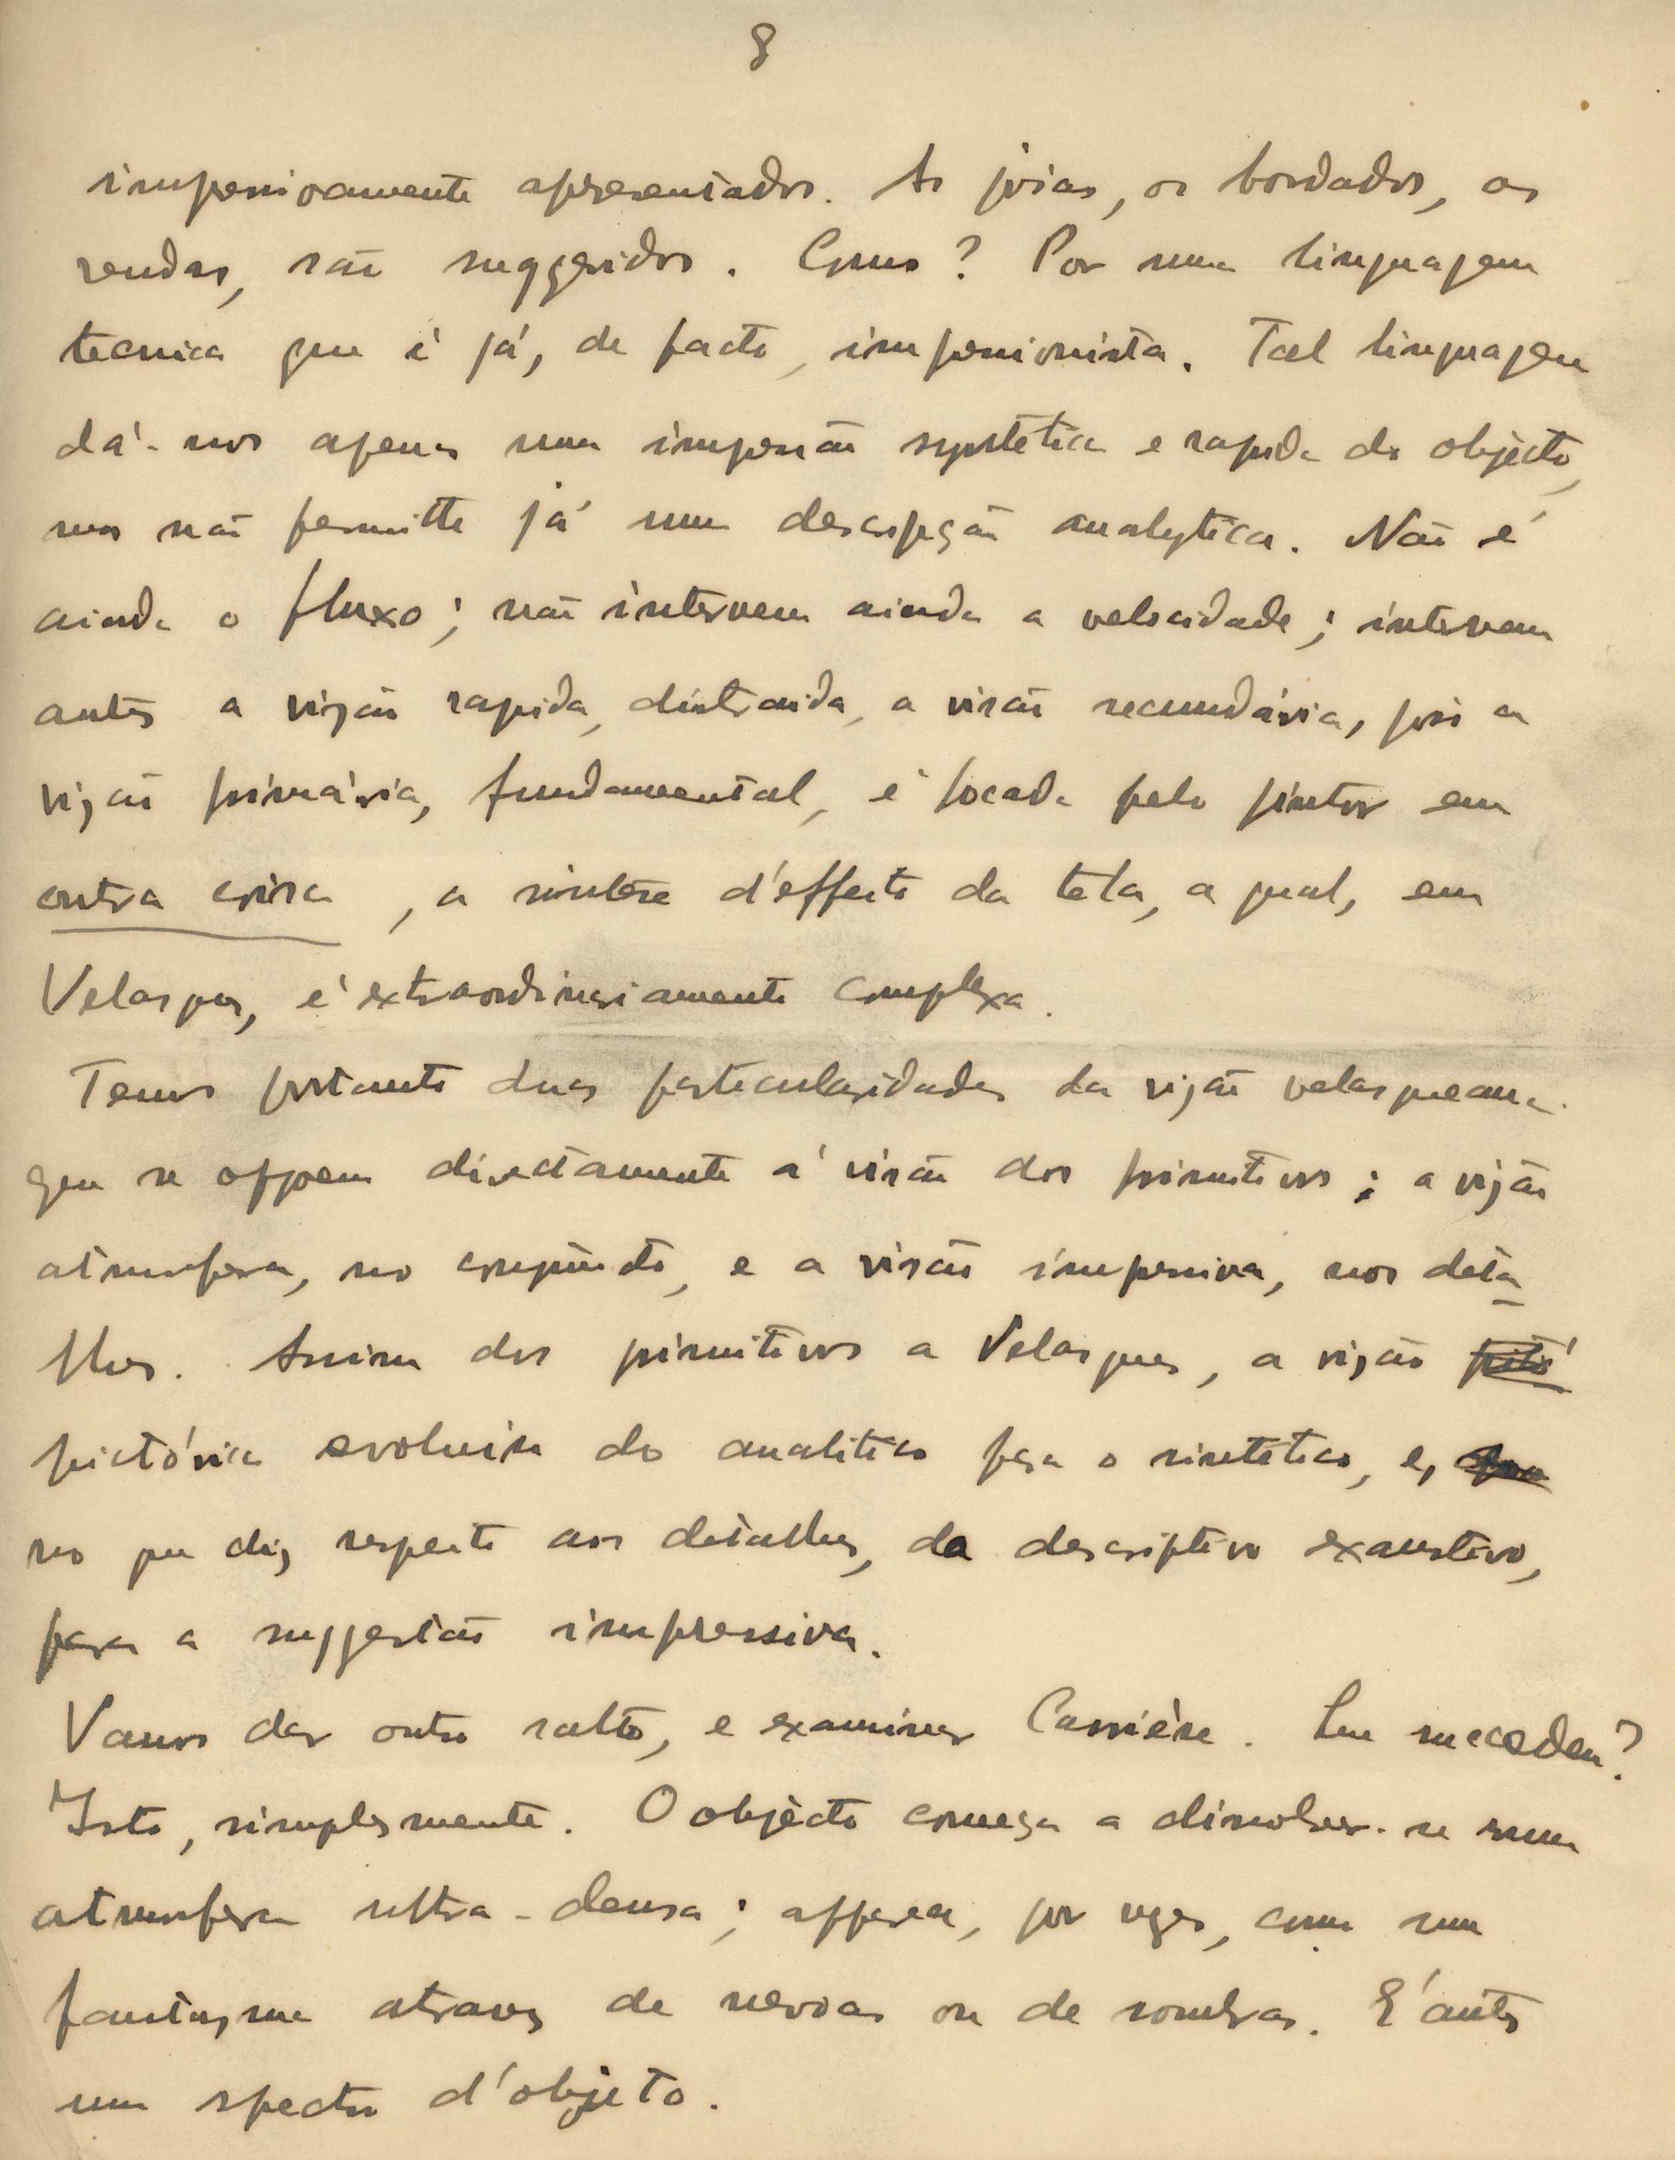 8
impressivamente apresentados. As joias, os bordados, as
rendas, são suggeridos. Como? Por uma linguagem
tecnica que é já, de facto, impressionista. Tal linguagem
dá-nos apenas uma impressão syntetica e rapida do objécto,
mas não permitte já uma descripção analytica. Não é
ainda o fluxo; não intervem ainda a velocidade; intervem
antes a vizão rapida, distraida, a visão secundária, pois a
vizão primária, fundamental, é focada pelo pintor em
outra coisa, a sintése d'effeito da tela, a qual, em
Velasques, é extraordinariamente complexa.
Temos portanto duas particularidades da vizão velasqueana
que se oppoem directamente á visão dos primitivos: a vizão
atmosfera, no conjuncto, e a visão impressiva, nos deta
lhes. Assim dos primitivos a Velasques, a vizão
pictórica evoluiu do analitico para o sintetico, e,
no que diz respeito aos detalhes, da descriptivo exaustivo,
para a suggestão impressiva.
Vamos dar outro salto, e examinar Carrière. Que succedeu?
Isto, simplesmente. O objécto começa a dissolver-se numa
atmosfera ultra-densa; apparece, por vezes, como um
fantasma atravez de nevoas ou de sombras. E' antes
um spectro d'objeto.